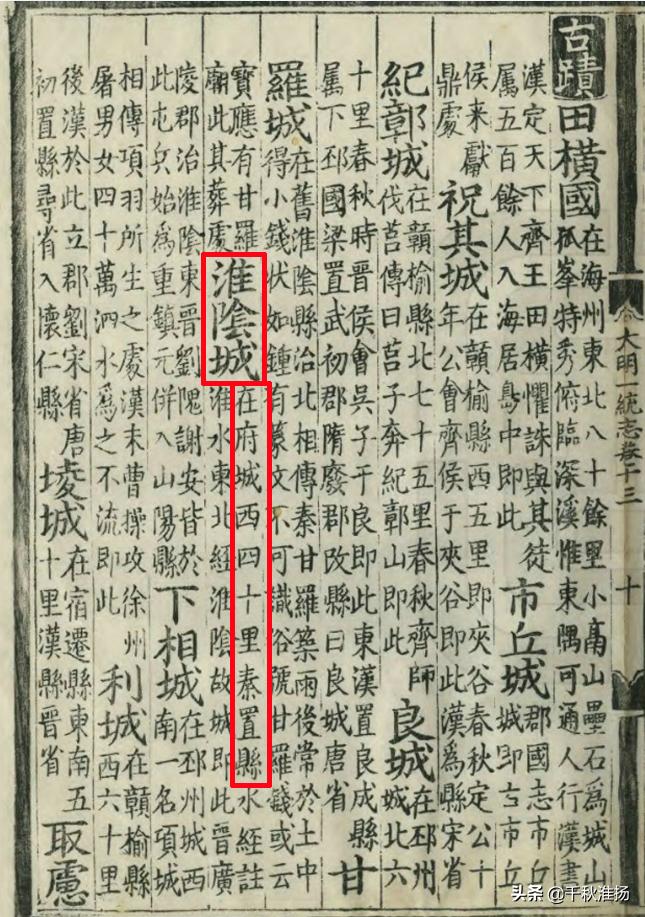 古蹟
田橫國
在海州東北八十餘里小鬲山壘石為城山
孤峯特秀俯臨深溪惟東隅可通人行漢書
漢定天下齊王田橫懼誅與其徒
屬五百餘人入海居島中即此
市丘城
郡國志市丘
城即古市丘
侯來獻
鼎處
祝其城
在贛榆縣西五里即夾谷春秋定公十
年公會齊侯于夾谷即此漢為縣宋省
紀鄣城
在贛榆縣北七十五里春秋齊師
伐莒傳曰莒子奔紀鄣山即此
良城
在邳州
城北六
十里春秋時晉侯會吳子于良即此東漢置良成縣
屬下邳國梁置武初郡隋廢郡改縣曰良城唐省
甘
羅城
在舊淮陰縣治北相傳秦甘羅築雨後常於土中
得小錢伏如鍾有篆文不可識俗號甘羅錢或云
寶應有甘羅
廟此其葬處
淮陰城
在府城西四十里秦置縣水經註
淮水東北經淮陰故城即此晉廣
陵郡治淮陰東晉劉隗謝安皆於
此屯兵始為重鎮元併入山陽縣
下相城
在邳州城西
南一名項城
相傳項羽所生之處漢末曹操攻徐州
屠男女四十萬泗水為之不流即此
利城
在贛榆縣
西六十里
後漢於此立郡劉宋省唐
初置縣尋省入懷仁縣
堎城
在宿遷縣東南五
十里漢縣晉省
取慮
大明一統志卷十三
十
头条 @千秋淮扬